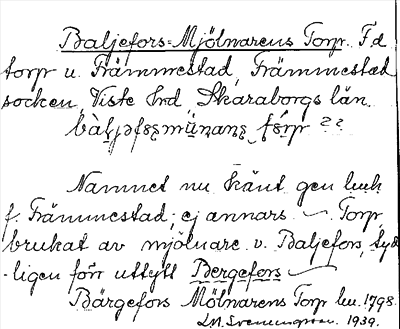 Baljefors-Mjölnarens Torp. F.d.
torp u. Främmestad, Främmestad
socken, Viste hrd, Skaraborgs län.
Namnet nu känt gen husk
f. Främmestad; ej annars. — Torp
brukat av mjölnare v. Baljefors, tyd-
ligen förr uttytt Bergefors —
Bärgefors Mölnarens Torp hu. 1798.
1939.